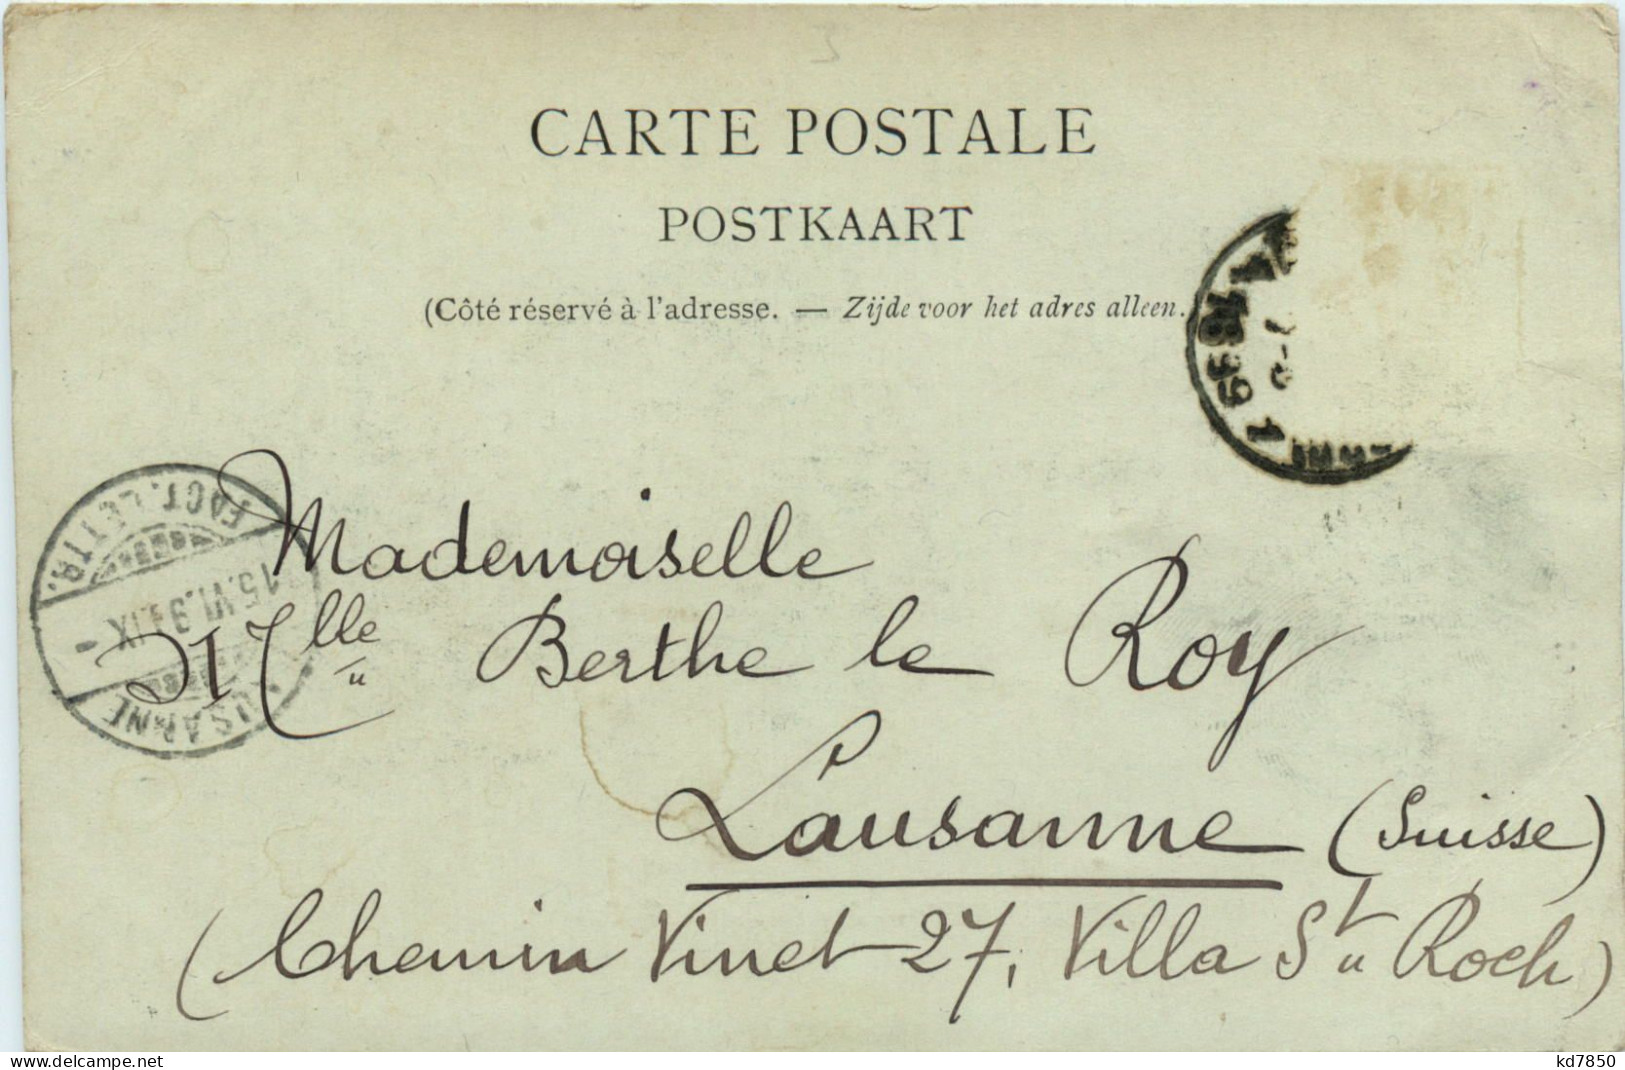 CARTE POSTALE
POSTKAART
(Côté réservé à l'adresse. — Zijde voor het adres alleen.)
1899
FACT. LETTR.
15.VI.99.IX
LAUSANNE
Mademoiselle
Mlle Berthe le Roy
Lausanne (Suisse)
(Chemin Vinet 27, Villa St Roch)
www.delcampe.net
kd7850